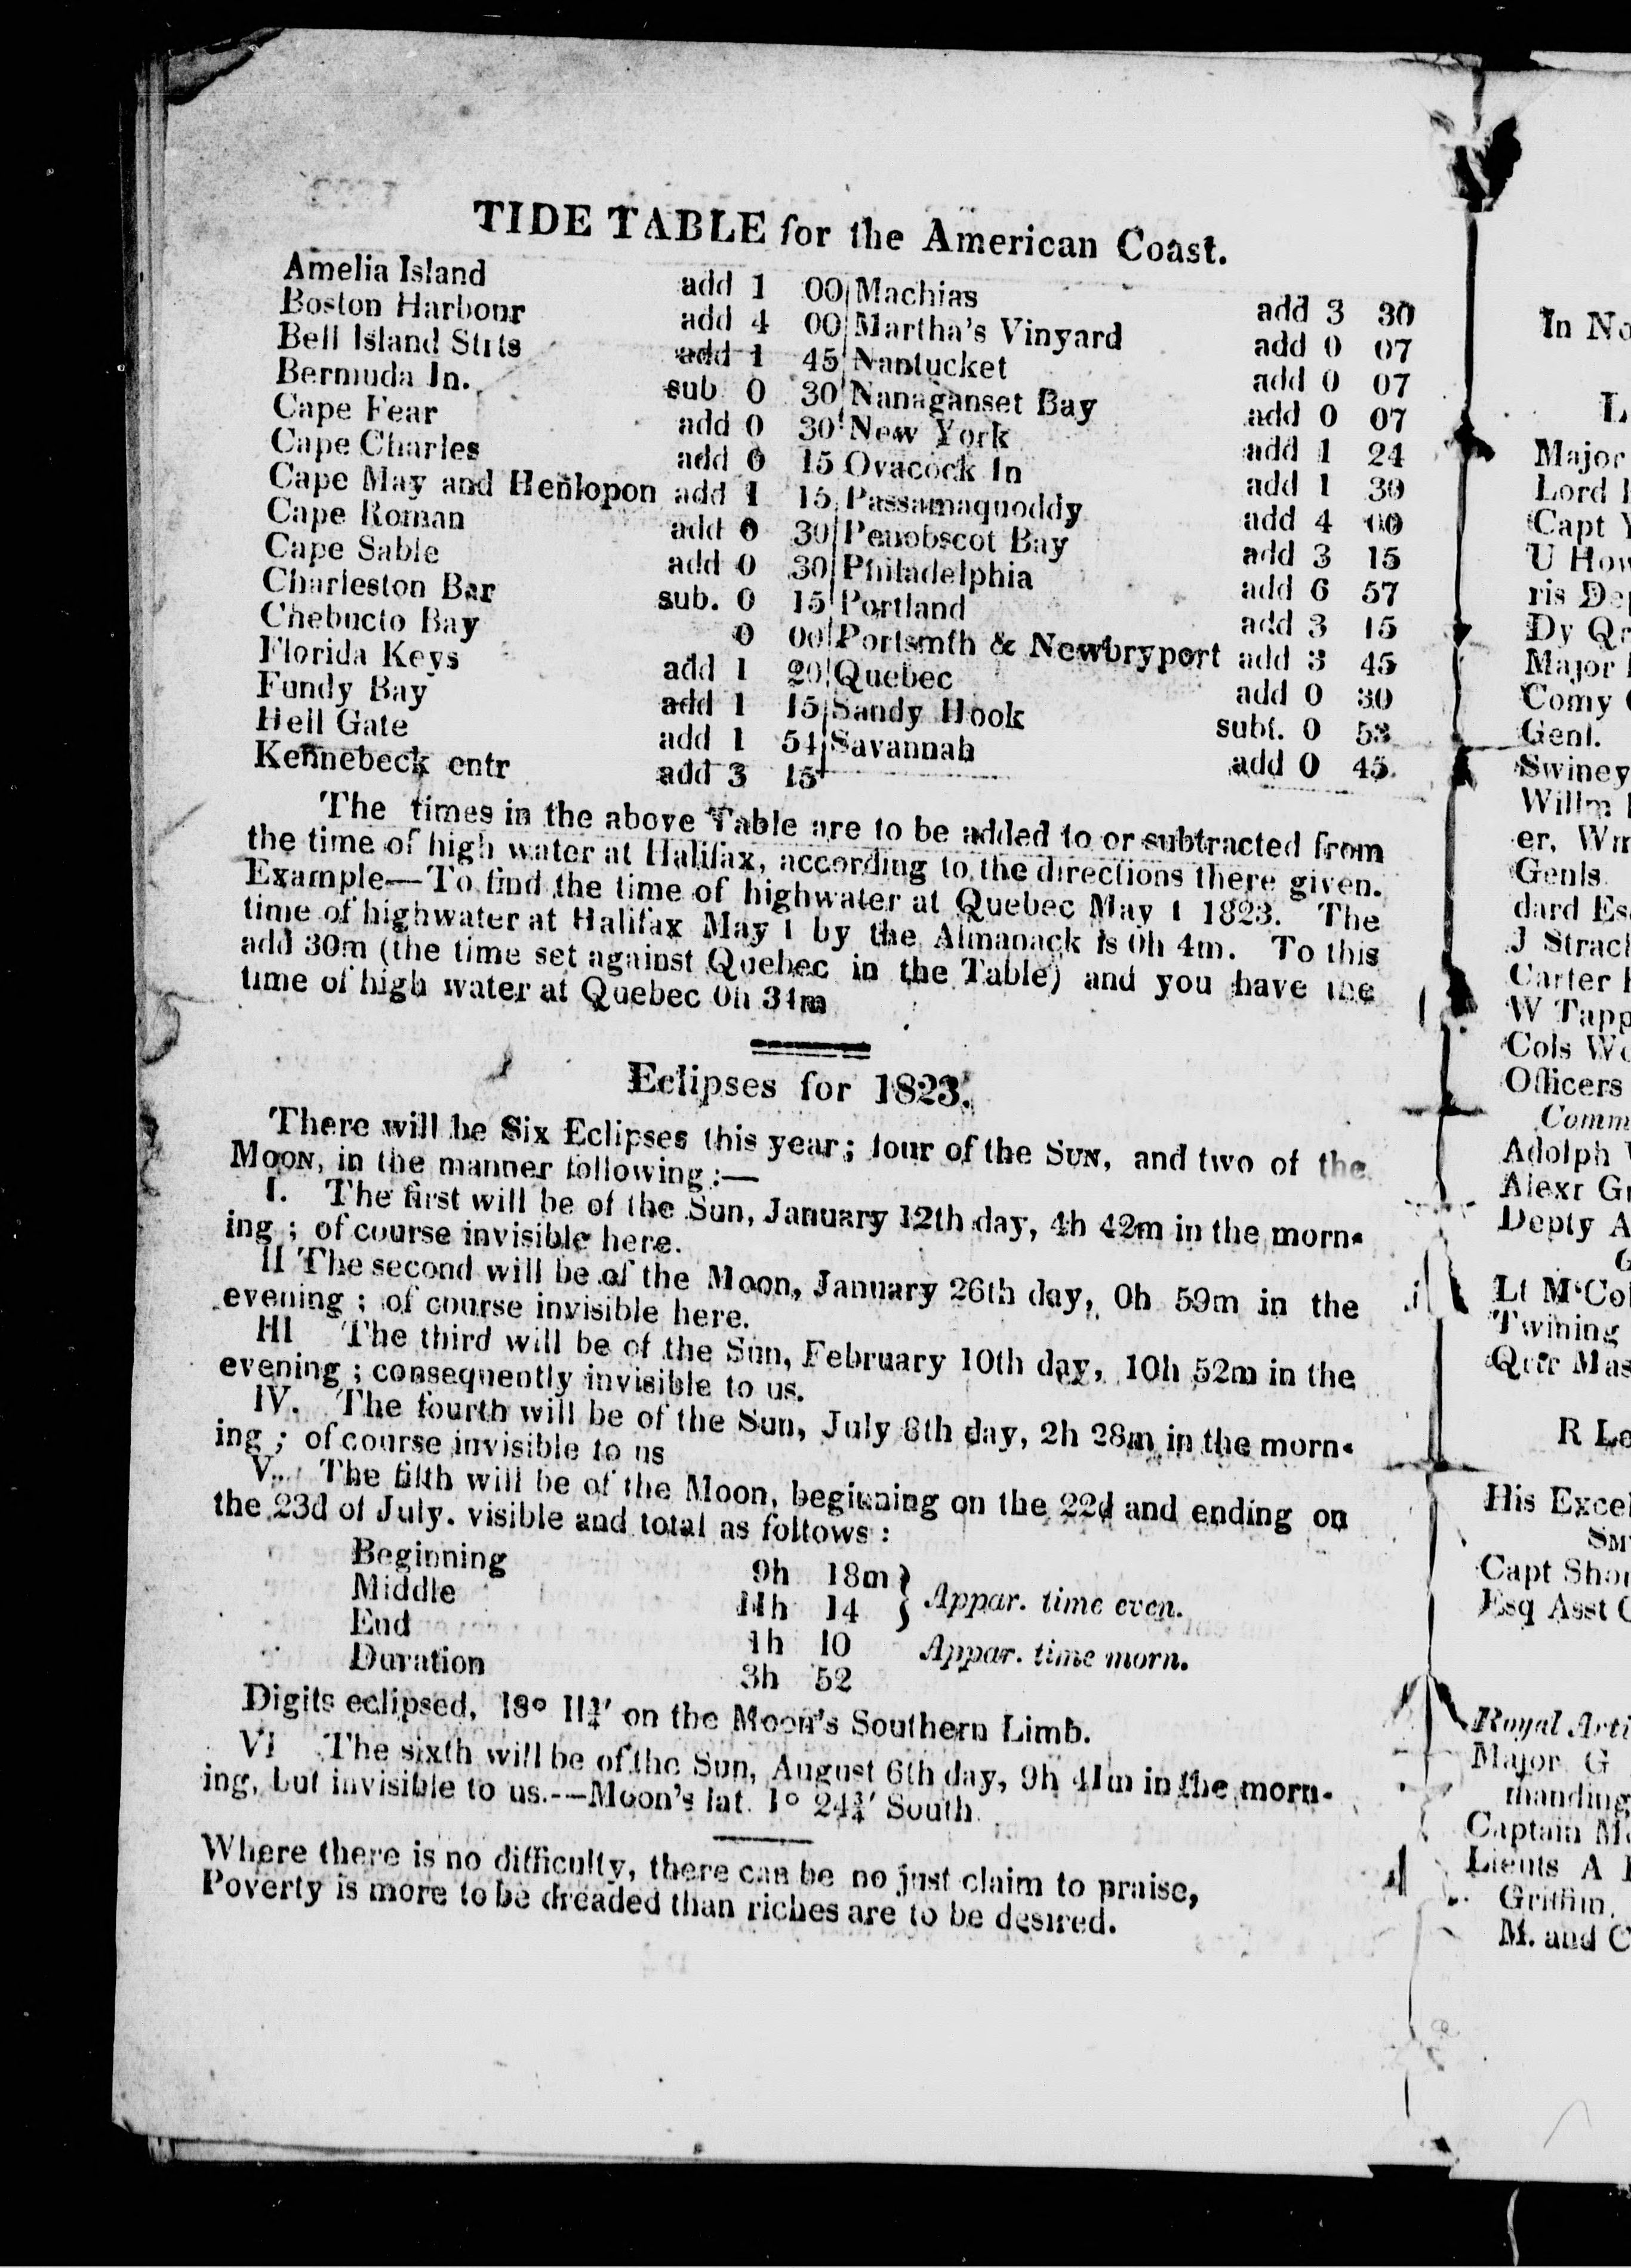 TIDE TABLE for the American Coast.
Amelia Island add 1 00
Boston Harbour add 4 00
Bell Island Strts add 1 45
Bermuda In. sub 0 30
Cape Fear add 0 30
Cape Charles add 0 15
Cape May and Henlopon add 1 15
Cape Roman add 0 30
Cape Sable add 0 30
Charleston Bar sub. 0 15
Chebucto Bay 0 00
Florida Keys add 1 20
Fundy Bay add 1 15
Hell Gate add 1 54
Kennebeck entr add 3 15
Machias add 3 30
Martha's Vinyard add 0 07
Nantucket add 0 07
Nanaganset Bay add 0 07
New York add 1 24
Ovacock In add 1 30
Passamaquoddy add 4 00
Penobscot Bay add 3 15
Philadelphia add 6 57
Portland add 3 15
Portsmth & Newbryport add 3 45
Quebec add 0 30
Sandy Hook subt. 0 53
Savannah add 0 45
The times in the above Table are to be added to or subtracted from
the time of high water at Halifax, according to the directions there given.
Example—To find the time of highwater at Quebec May 1 1823. The
time of highwater at Halifax May 1 by the Almanack is 0h 4m. To this
add 30m (the time set against Quebec in the Table) and you have the
time of high water at Quebec 0h 34m
Eclipses for 1823.
There will be Six Eclipses this year; four of the SUN, and two of the
MOON, in the manner following:—
I. The first will be of the Sun, January 12th day, 4h 42m in the morn-
ing; of course invisible here.
II The second will be of the Moon, January 26th day, 0h 59m in the
evening; of course invisible here.
III The third will be of the Sun, February 10th day, 10h 52m in the
evening; consequently invisible to us.
IV. The fourth will be of the Sun, July 8th day, 2h 28m in the morn-
ing; of course invisible to us
V. The fifth will be of the Moon, beginning on the 22d and ending on
the 23d of July. visible and total as follows:
Beginning 9h 18m
Middle 11h 14 } Appar. time even.
End 1h 10 Appar. time morn.
Duration 3h 52
Digits eclipsed, 18° 11¾′ on the Moon's Southern Limb.
VI The sixth will be of the Sun, August 6th day, 9h 41m in the morn-
ing, but invisible to us.--Moon's lat. 1° 24¾′ South.
Where there is no difficulty, there can be no just claim to praise,
Poverty is more to be dreaded than riches are to be desired.
In No
L
Major
Lord
Capt
U How
ris Dep
Dy Qr
Major
Comy
Genl.
Swiney
Willm
er, Wm
Genls
dard Es
J Strach
Carter
W Tapp
Cols Wo
Officers
Comm
Adolph
Alexr Gr
Depty A
G
Lt McCol
Twining
Qrtr Mas
R Le
His Excel
SM
Capt Shor
Esq Asst
Royal Arti
Major G
manding
Captain
Lieuts A
Griffin.
M. and C